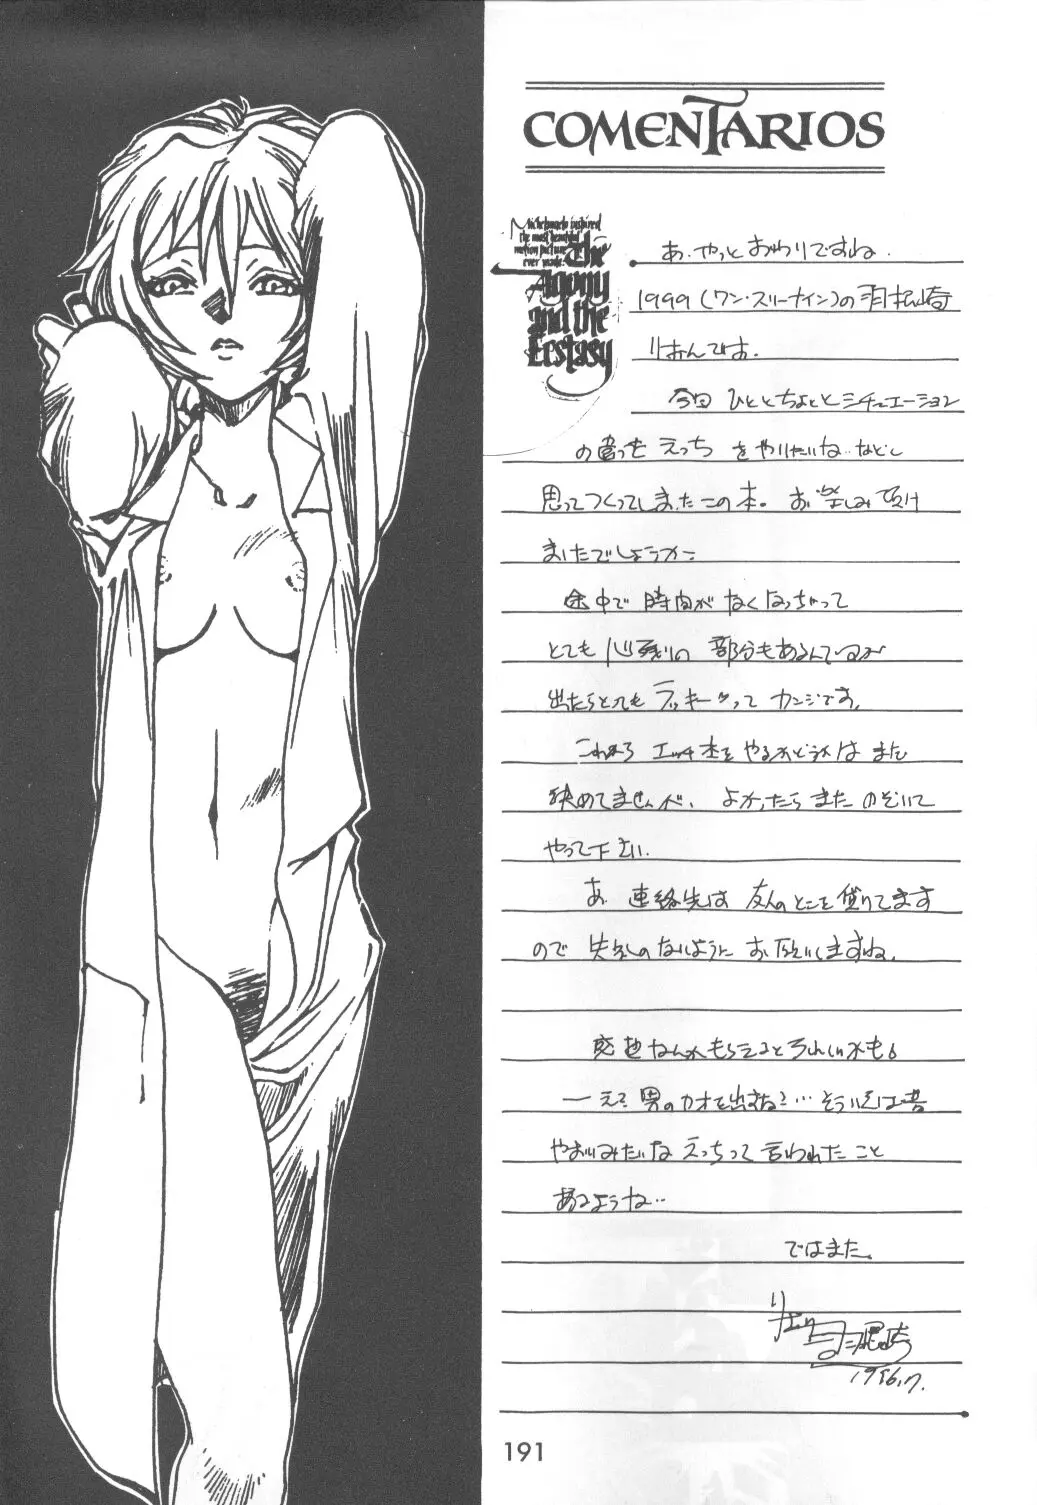 COMENTARIOS
Michelangelo inspired
the most beautiful
motion picture
ever made.
The
Agony
and the
Ecstasy
あ、やっとおわりですね.
1999(ワン・スリーナイン)の
りおんです.
今回 ひとと ちょっと シチュエーション
の違った えっち をやりたいな‥などと
思ってつくってしまったこの本。お楽しみ頂け
ましたでしょうか?
途中で 時間が なくなっちゃって
とても 心残りの 部分もあるんですが
出たらとても ラッキーッって カンジです。
これから エッチ本を やるかどうかは まだ
決めてませんが、よかったら また のぞいて
やって下さい.
あ、連絡先は 友人のところを 借りてます
ので 失礼のないように お願いしますね.
感想なんかもらえると うれしいかも。
ーえ? 男のカオを出すな?…そういえば昔
やおいみたいな えっちって 言われた こと
あるような‥
ではまた。
191